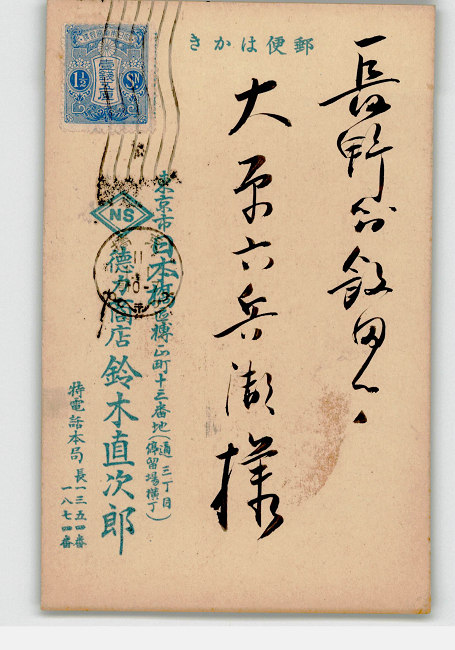 郵便はかき
長野県飯田町
大原六兵衛様
東京市日本橋區榑正町十三番地(通三丁目停留場横丁)
NS
徳力商店 鈴木直次郎
特電話本局 長一三五四番
一八七四番
壹錢五厘
1½ Sn